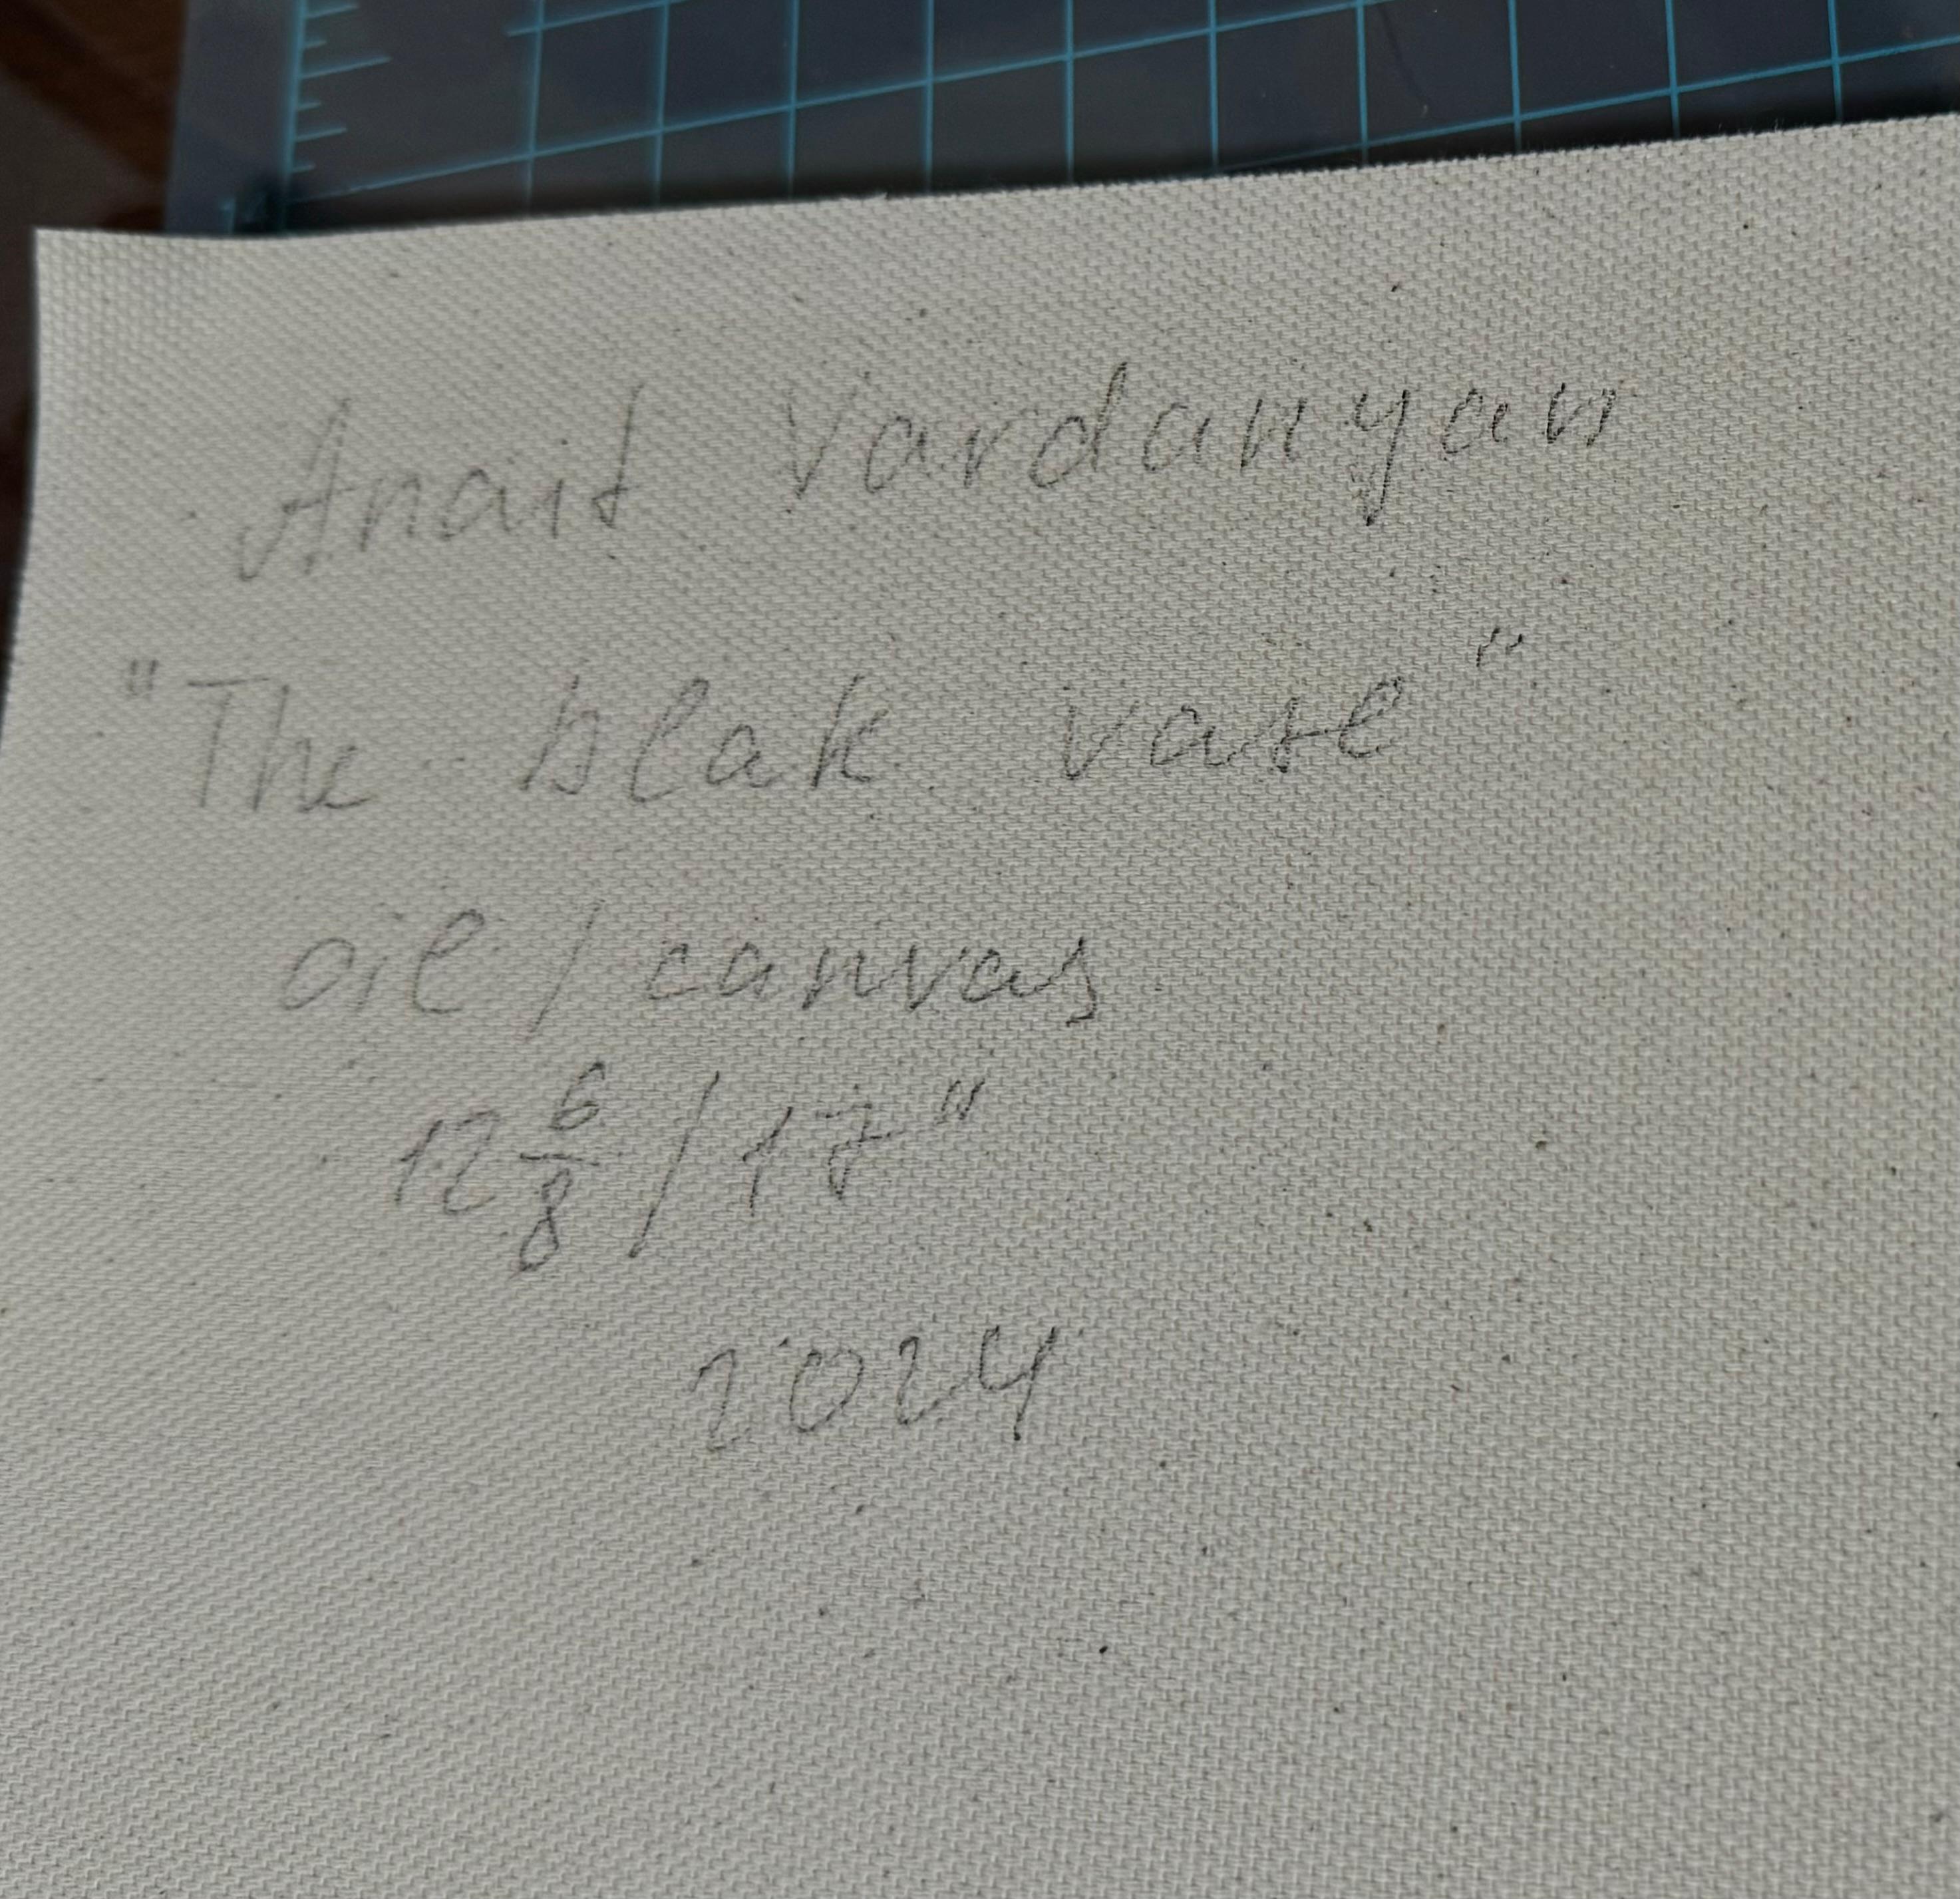 Anait Vardanyan
"The blak vase"
oil / canvas
12 6/8 / 17"
2024